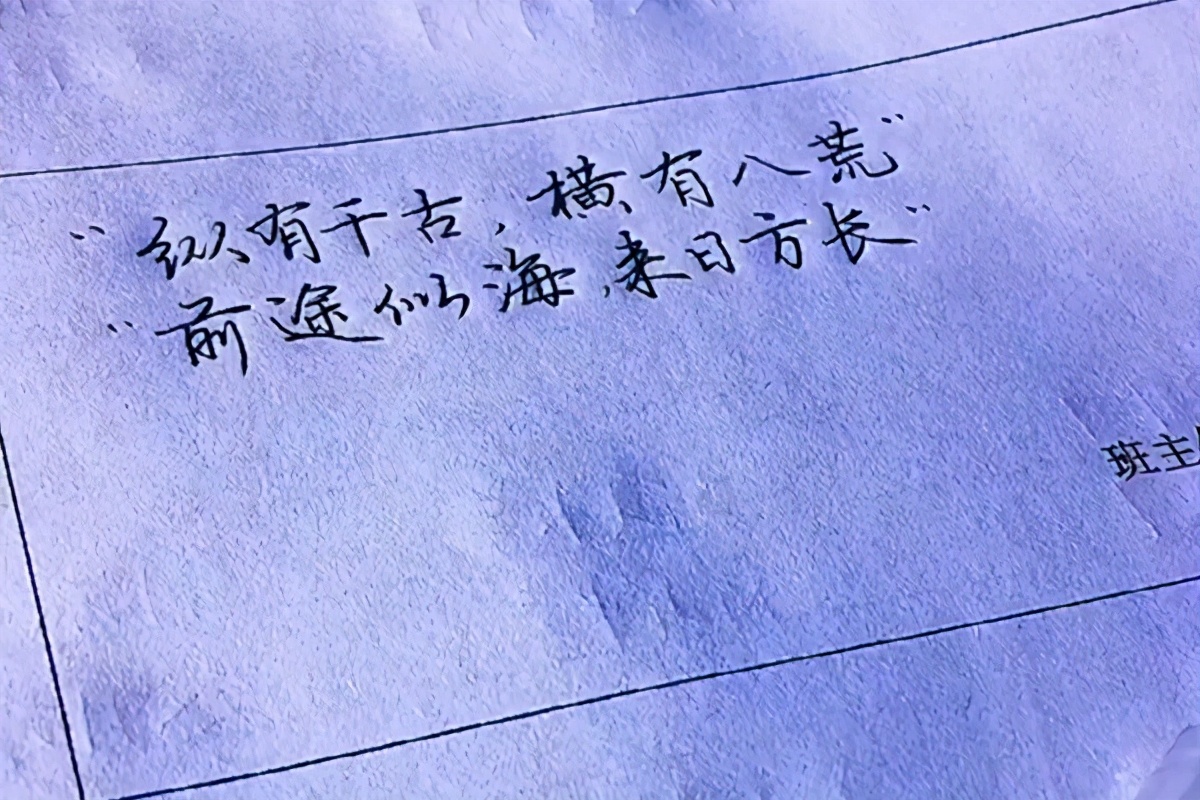 “纵有千古，横有八荒”
“前途似海，来日方长”
班主